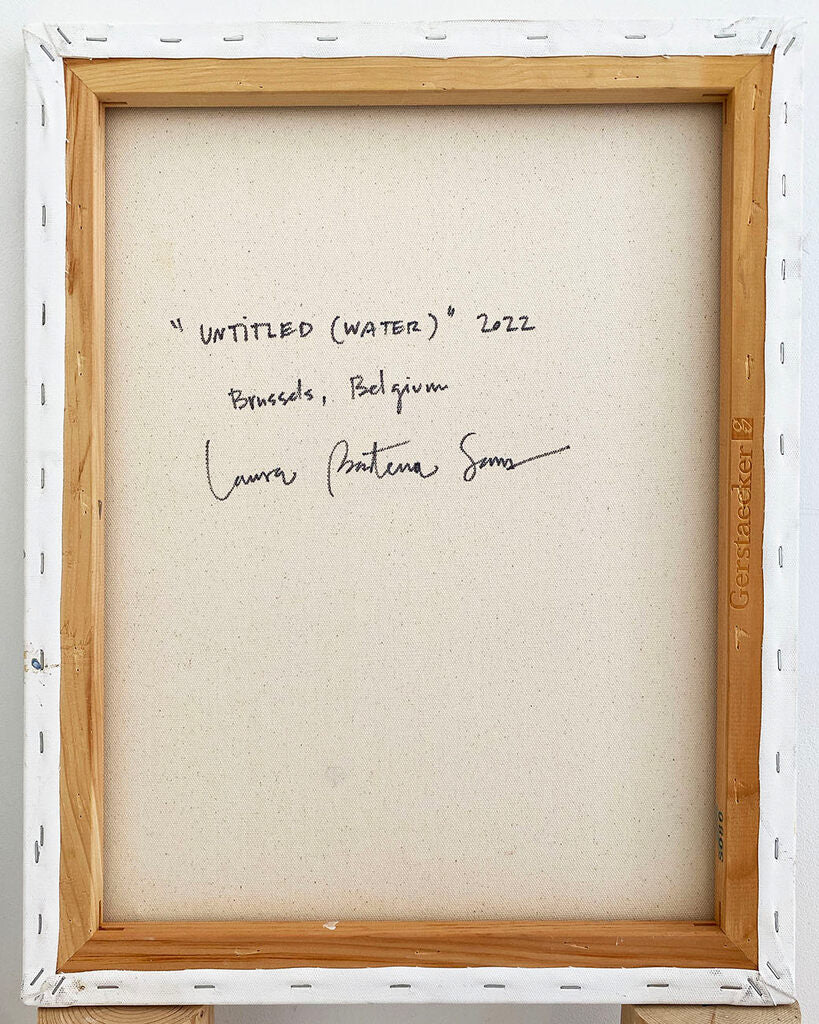 "UNTITLED (WATER)" 2022
Brussels, Belgium
Laura Batena Sans
Gerstaecker
5080